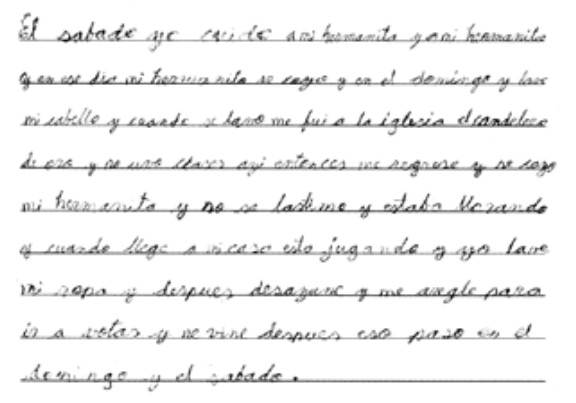 El sabado yo cuide a mi hermanita y a mi hermanito
y en ese dia mi hermanita se cayo y en el domingo y lave
mi cabello y cuando se lavo me fui a la iglesia el candelero
de oro y no uvo clases asi entonces me regrese y se cayo
mi hermanita y no se lastimo y estaba llorando
y cuando llege a mi casa esto jugando y yo lave
mi ropa y despues desayune y me aregle para
ir a votar y me vine despues eso paso en el
domingo y el sabado.